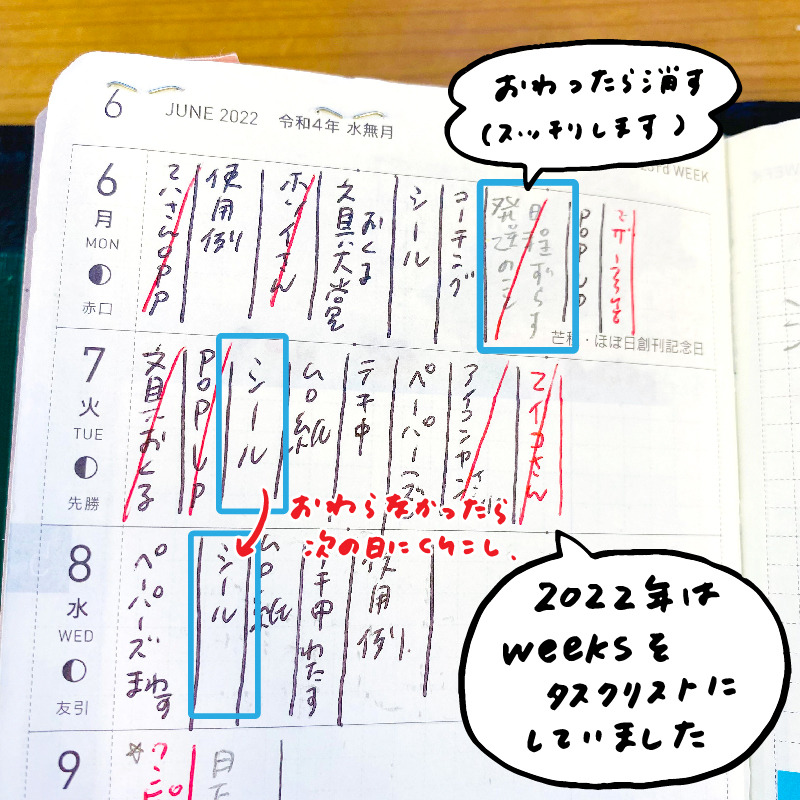 おわったら消す
(スッキリします)
6 JUNE 2022 令和4年 水無月
23rd WEEK
6
月
MON
赤口
使用例
ホンイさん
文具大賞
おくる
シール
コーチング
日程ずらす
発送のこと
POP UP
芒種・ほぼ日創刊記念日
7
火
TUE
先勝
文具おくる
POP UP
シール
ムロ紙
テキ中
ペーパーズ
マイコさん
おわらなかったら
次の日にくりこし.
8
水
WED
友引
ペーパーズまわす
シール
ムロ紙
テキ中わたす
使用例
2022年は
weeksを
タスクリストに
していました
9